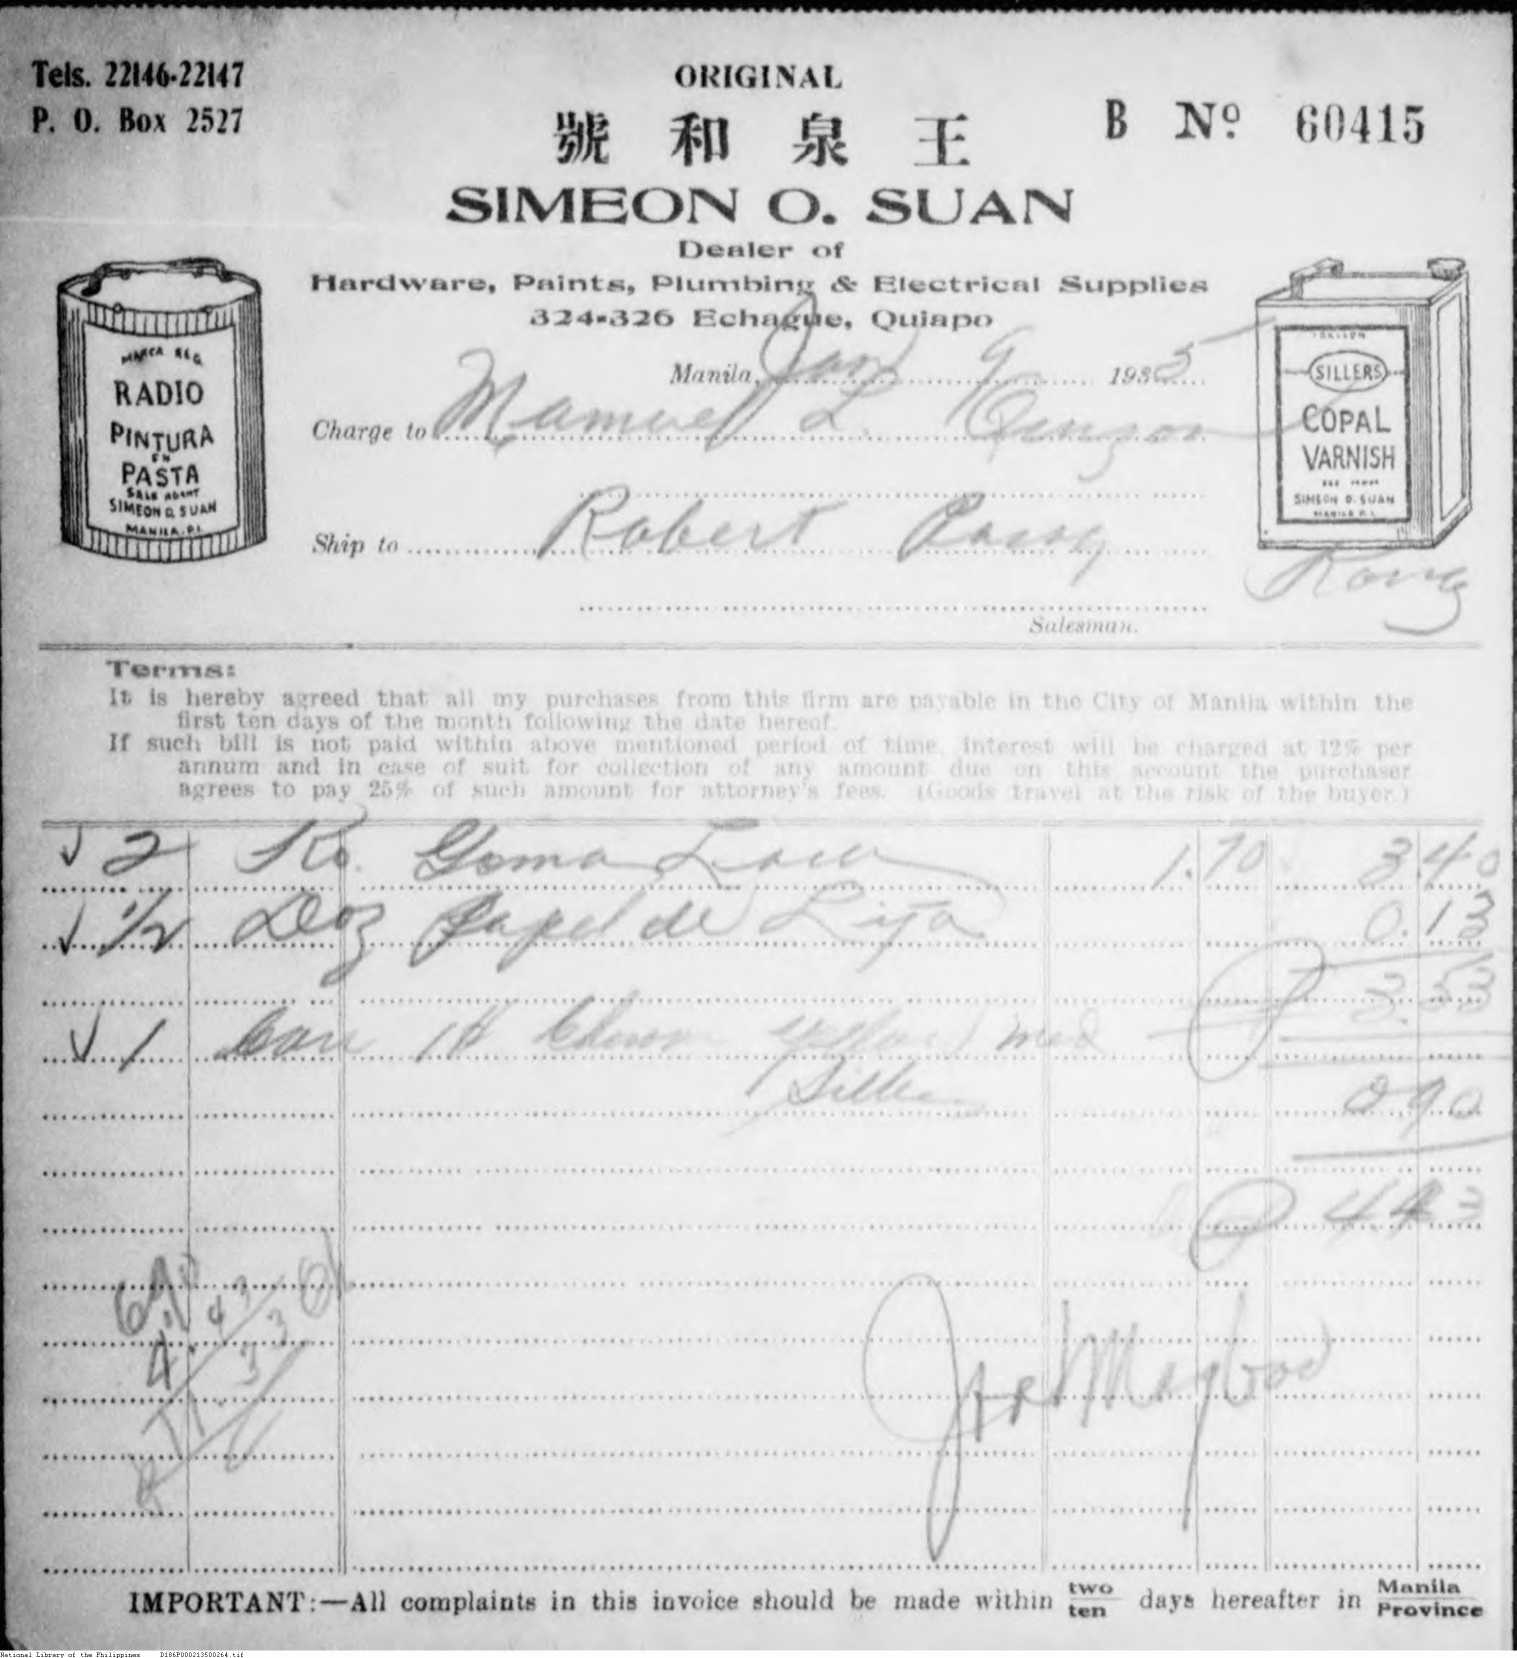 Tels. 22146-22147
P. O. Box 2527
ORIGINAL
B No 60415
號和泉王
SIMEON O. SUAN
Dealer of
Hardware, Paints, Plumbing & Electrical Supplies
324-326 Echague, Quiapo
MARCA REG
RADIO
PINTURA
EN
PASTA
SALE AGENT
SIMEON O. SUAN
MANILA. P.I.
SILLERS
COPAL
VARNISH
SIMEON O. SUAN
MANILA P. I.
Manila, Jan 9 1935
Charge to Manuel L. Quezon
Ship to Robert
Salesman.
Terms:
It is hereby agreed that all my purchases from this firm are payable in the City of Manila within the
first ten days of the month following the date hereof.
If such bill is not paid within above mentioned period of time, interest will be charged at 12% per
annum and in case of suit for collection of any amount due on this account the purchaser
agrees to pay 25% of such amount for attorney's fees. (Goods travel at the risk of the buyer.)
2 Ko. Goma Laca 1.70 3.40
1/2 Doz Papel de Lija 0.13
3.53
1
0.90
4.43
IMPORTANT:—All complaints in this invoice should be made within two/ten days hereafter in Manila/Province
National Library of the Philippines D186P000213500264.tif